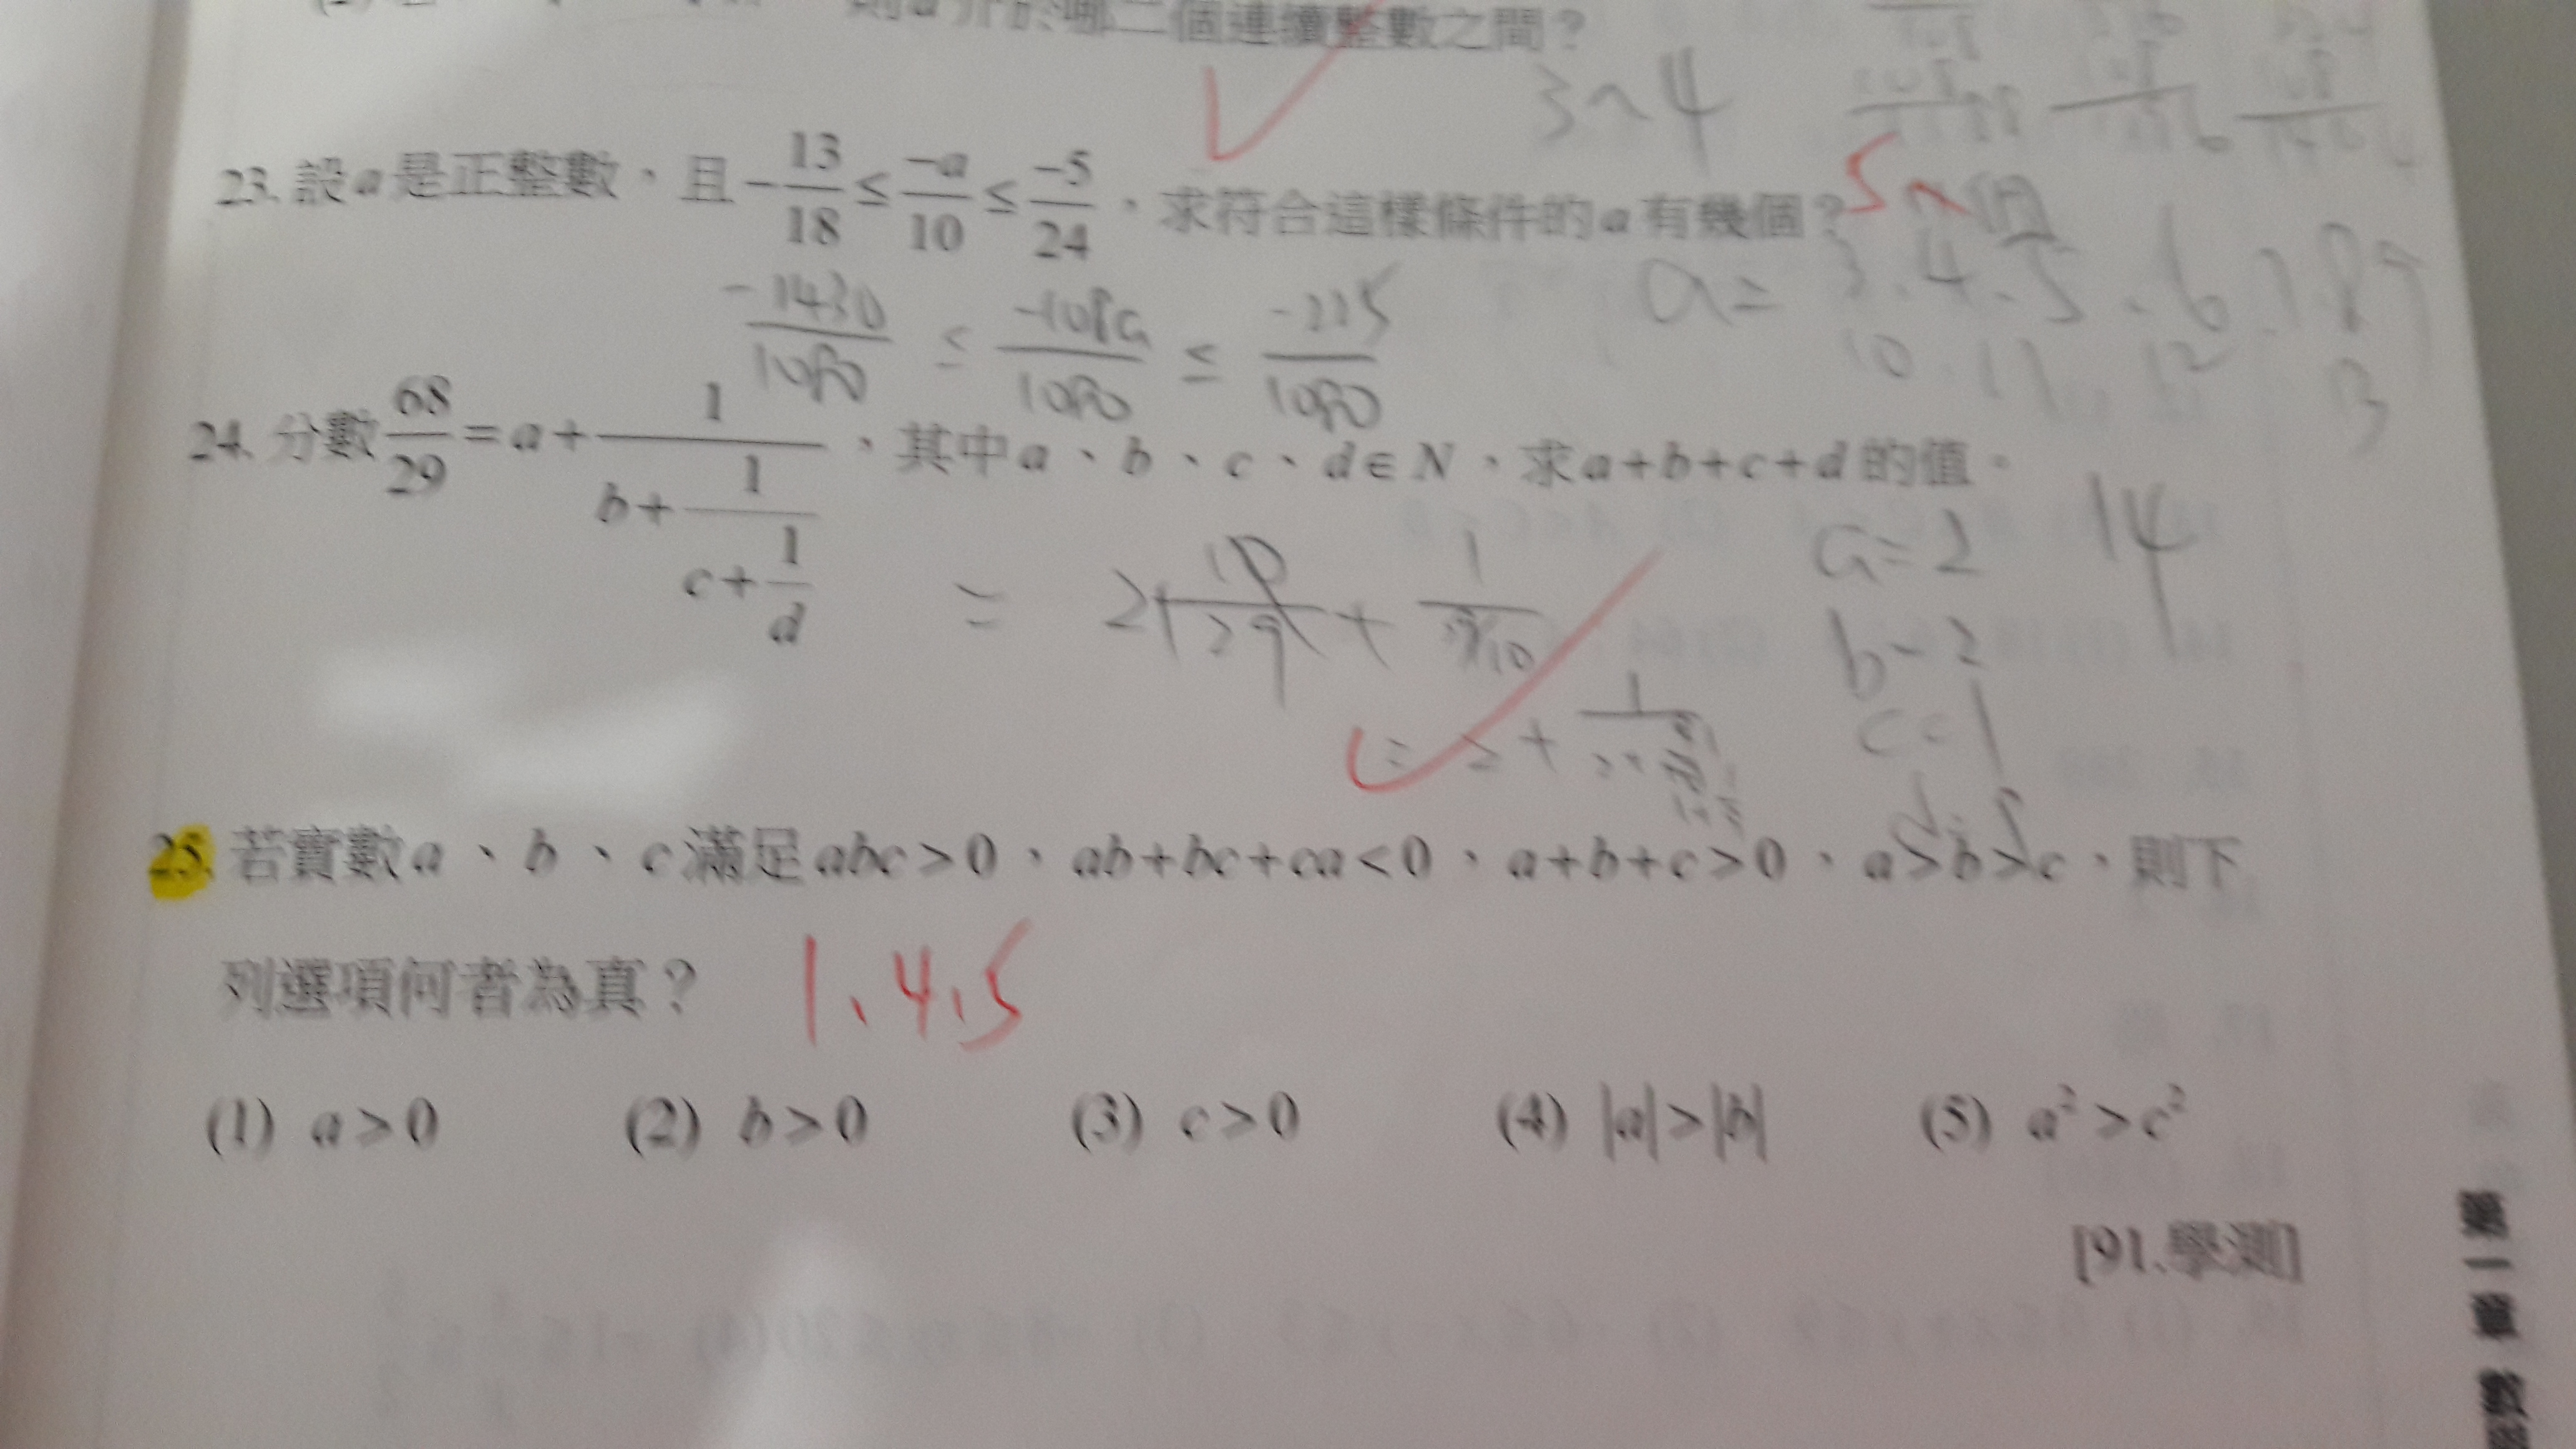 則a介於哪二個連續整數之間？
3~4
23. 設a是正整數，且-13/18≤-a/10≤-5/24，求符合這樣條件的a有幾個？5個
-1430/1080 ≤ -108a/1080 ≤ -225/1080
a= 3.4.5.6.7.8 9
10 11 12
13
24. 分數68/29=a+1/(b+1/(c+1/d))，其中a、b、c、d∈N，求a+b+c+d的值。
14
= 2+10/29+1/(29/10)
a=2
b=2
c=1
= 2+
25. 若實數a、b、c滿足abc>0，ab+bc+ca<0，a+b+c>0，a>b>c，則下
列選項何者為真？ 1、4、5
(1) a>0 (2) b>0 (3) c>0 (4) |a|>|b| (5) a²>c²
[91.學測]
第一章 數